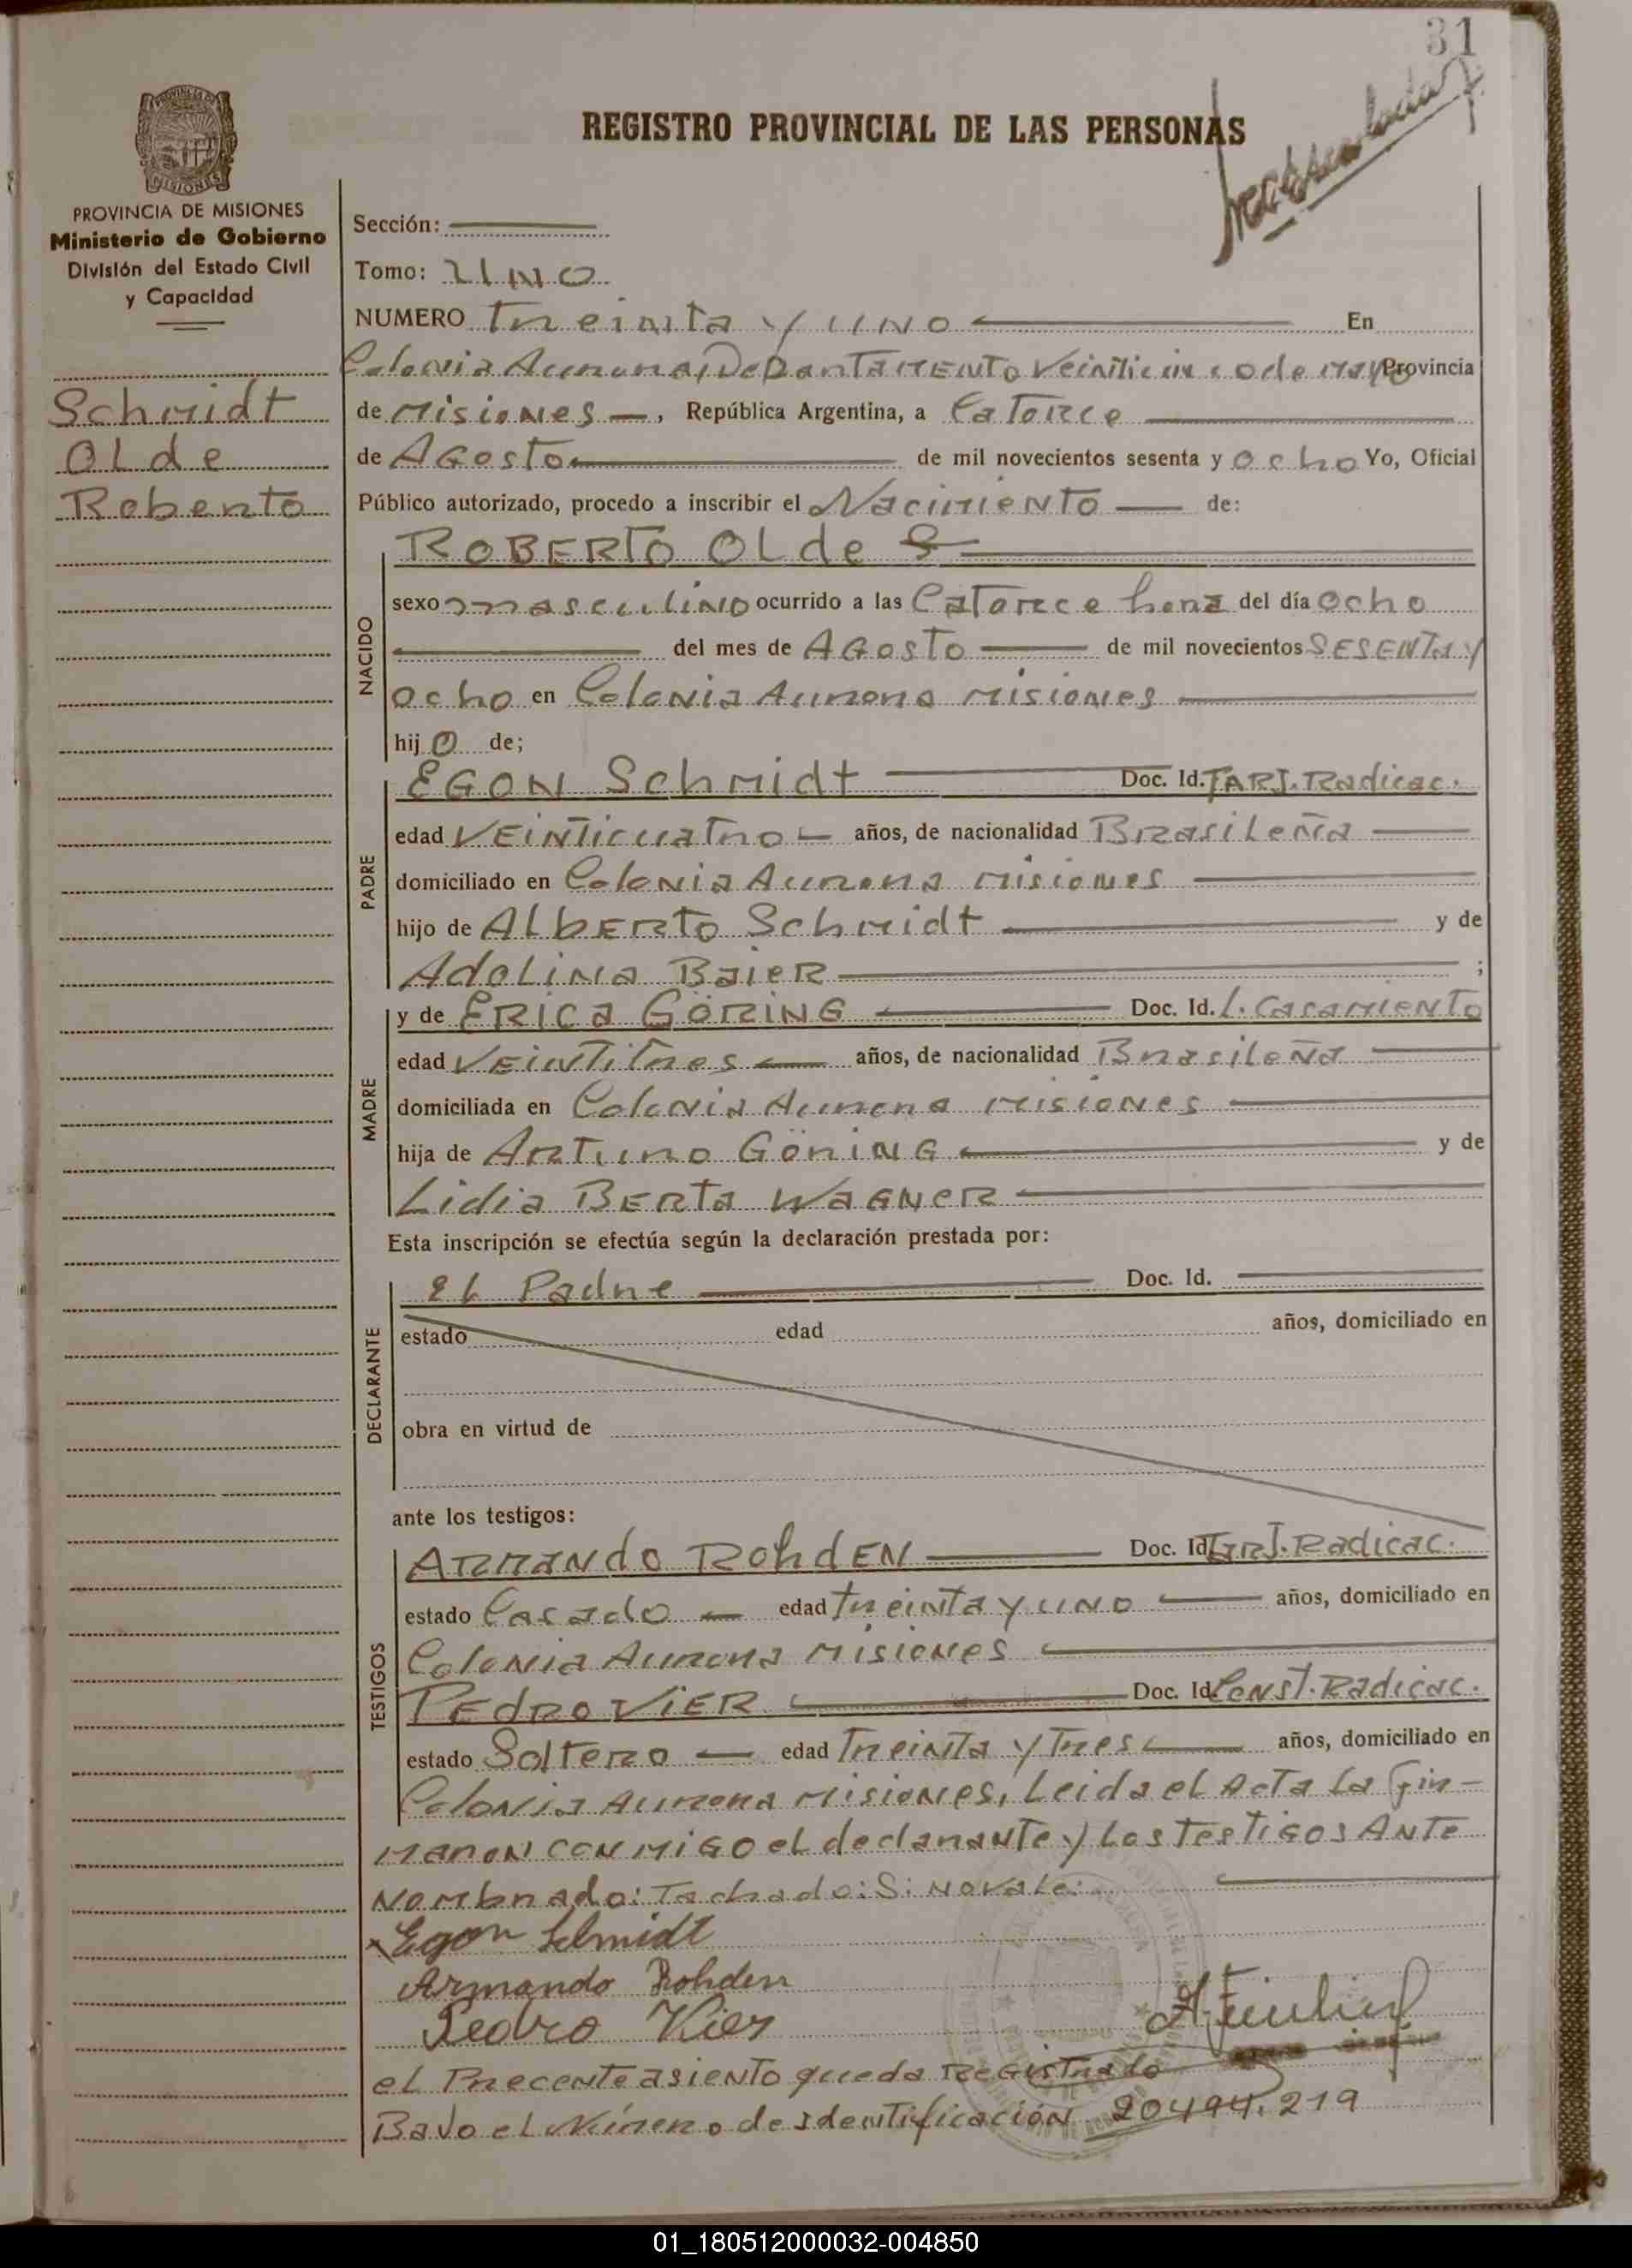 31
REGISTRO PROVINCIAL DE LAS PERSONAS
PROVINCIA DE MISIONES
Ministerio de Gobierno
División del Estado Civil
y Capacidad
Schmidt
Olde
Roberto
Sección:
Tomo: UNO
NUMERO Treinta y uno En
Colonia Aurora, Departamento Veinticinco de mayo Provincia
de Misiones, República Argentina, a Catorce
de Agosto de mil novecientos sesenta y ocho Yo, Oficial
Público autorizado, procedo a inscribir el Nacimiento de:
NACIDO
ROBERTO OLde S
sexo masculino ocurrido a las Catorce hora del día ocho
del mes de AGosTo de mil novecientos SESENTa y
ocho en Colonia Aurora Misiones
hijo de;
PADRE
EGON Schmidt Doc. Id. TARJ. Radicac.
edad VEiNTicuatro años, de nacionalidad Brasileña
domiciliado en Colonia Aurora Misiones
hijo de AlbERTo Schmidt y de
AdoLiNa BaieR ;
MADRE
y de ERiCa GÖRiNG Doc. Id. L. Casamiento
edad VEiNTiTres años, de nacionalidad Brasileña
domiciliada en Colonia Aurora Misiones
hija de ARTuro GöriNG y de
Lidia BERta WaGNeR
Esta inscripción se efectúa según la declaración prestada por:
DECLARANTE
el Padre Doc. Id.
estado edad años, domiciliado en
obra en virtud de
ante los testigos:
TESTIGOS
ARMANdo RohdEN Doc. Id TARJ. Radicac.
estado Casado edad treinta y uno años, domiciliado en
Colonia Aurora Misiones
PEdRo ViER Doc. Id Const. Radicac.
estado Soltero edad Treinta y Tres años, domiciliado en
Colonia Aurora Misiones, Leida el Acta La fir-
maron conmigo el declarante y Los Testigos Ante
Nombrado: Tachado: S: No Vale:
Egon Schmidt
Armando Rohden
Pedro Vier
el Precente asiento queda Registrado
Bajo el Número de Identificación 20494.219
01_180512000032-004850